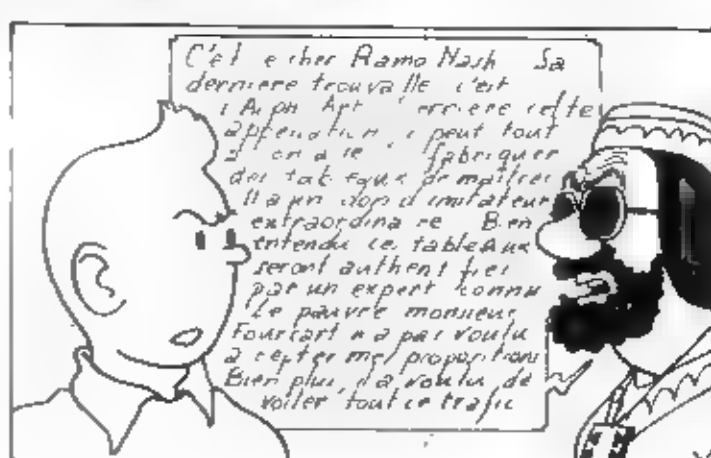 C'est ce cher Ramo Nash Sa
derniere trouvaille c'est
l'Alph Art derriere cette
appellation, peut tout
fabriquer
des tableaux de maîtres
Il a un don d'imitateur
extraordinaire Bien
entendu ces tableaux
seront authentifiés
par un expert connu
Le pauvre monsieur
Fourcart n'a pas voulu
accepter mes propositions
Bien plus, il a voulu dé
voiler tout ce trafic